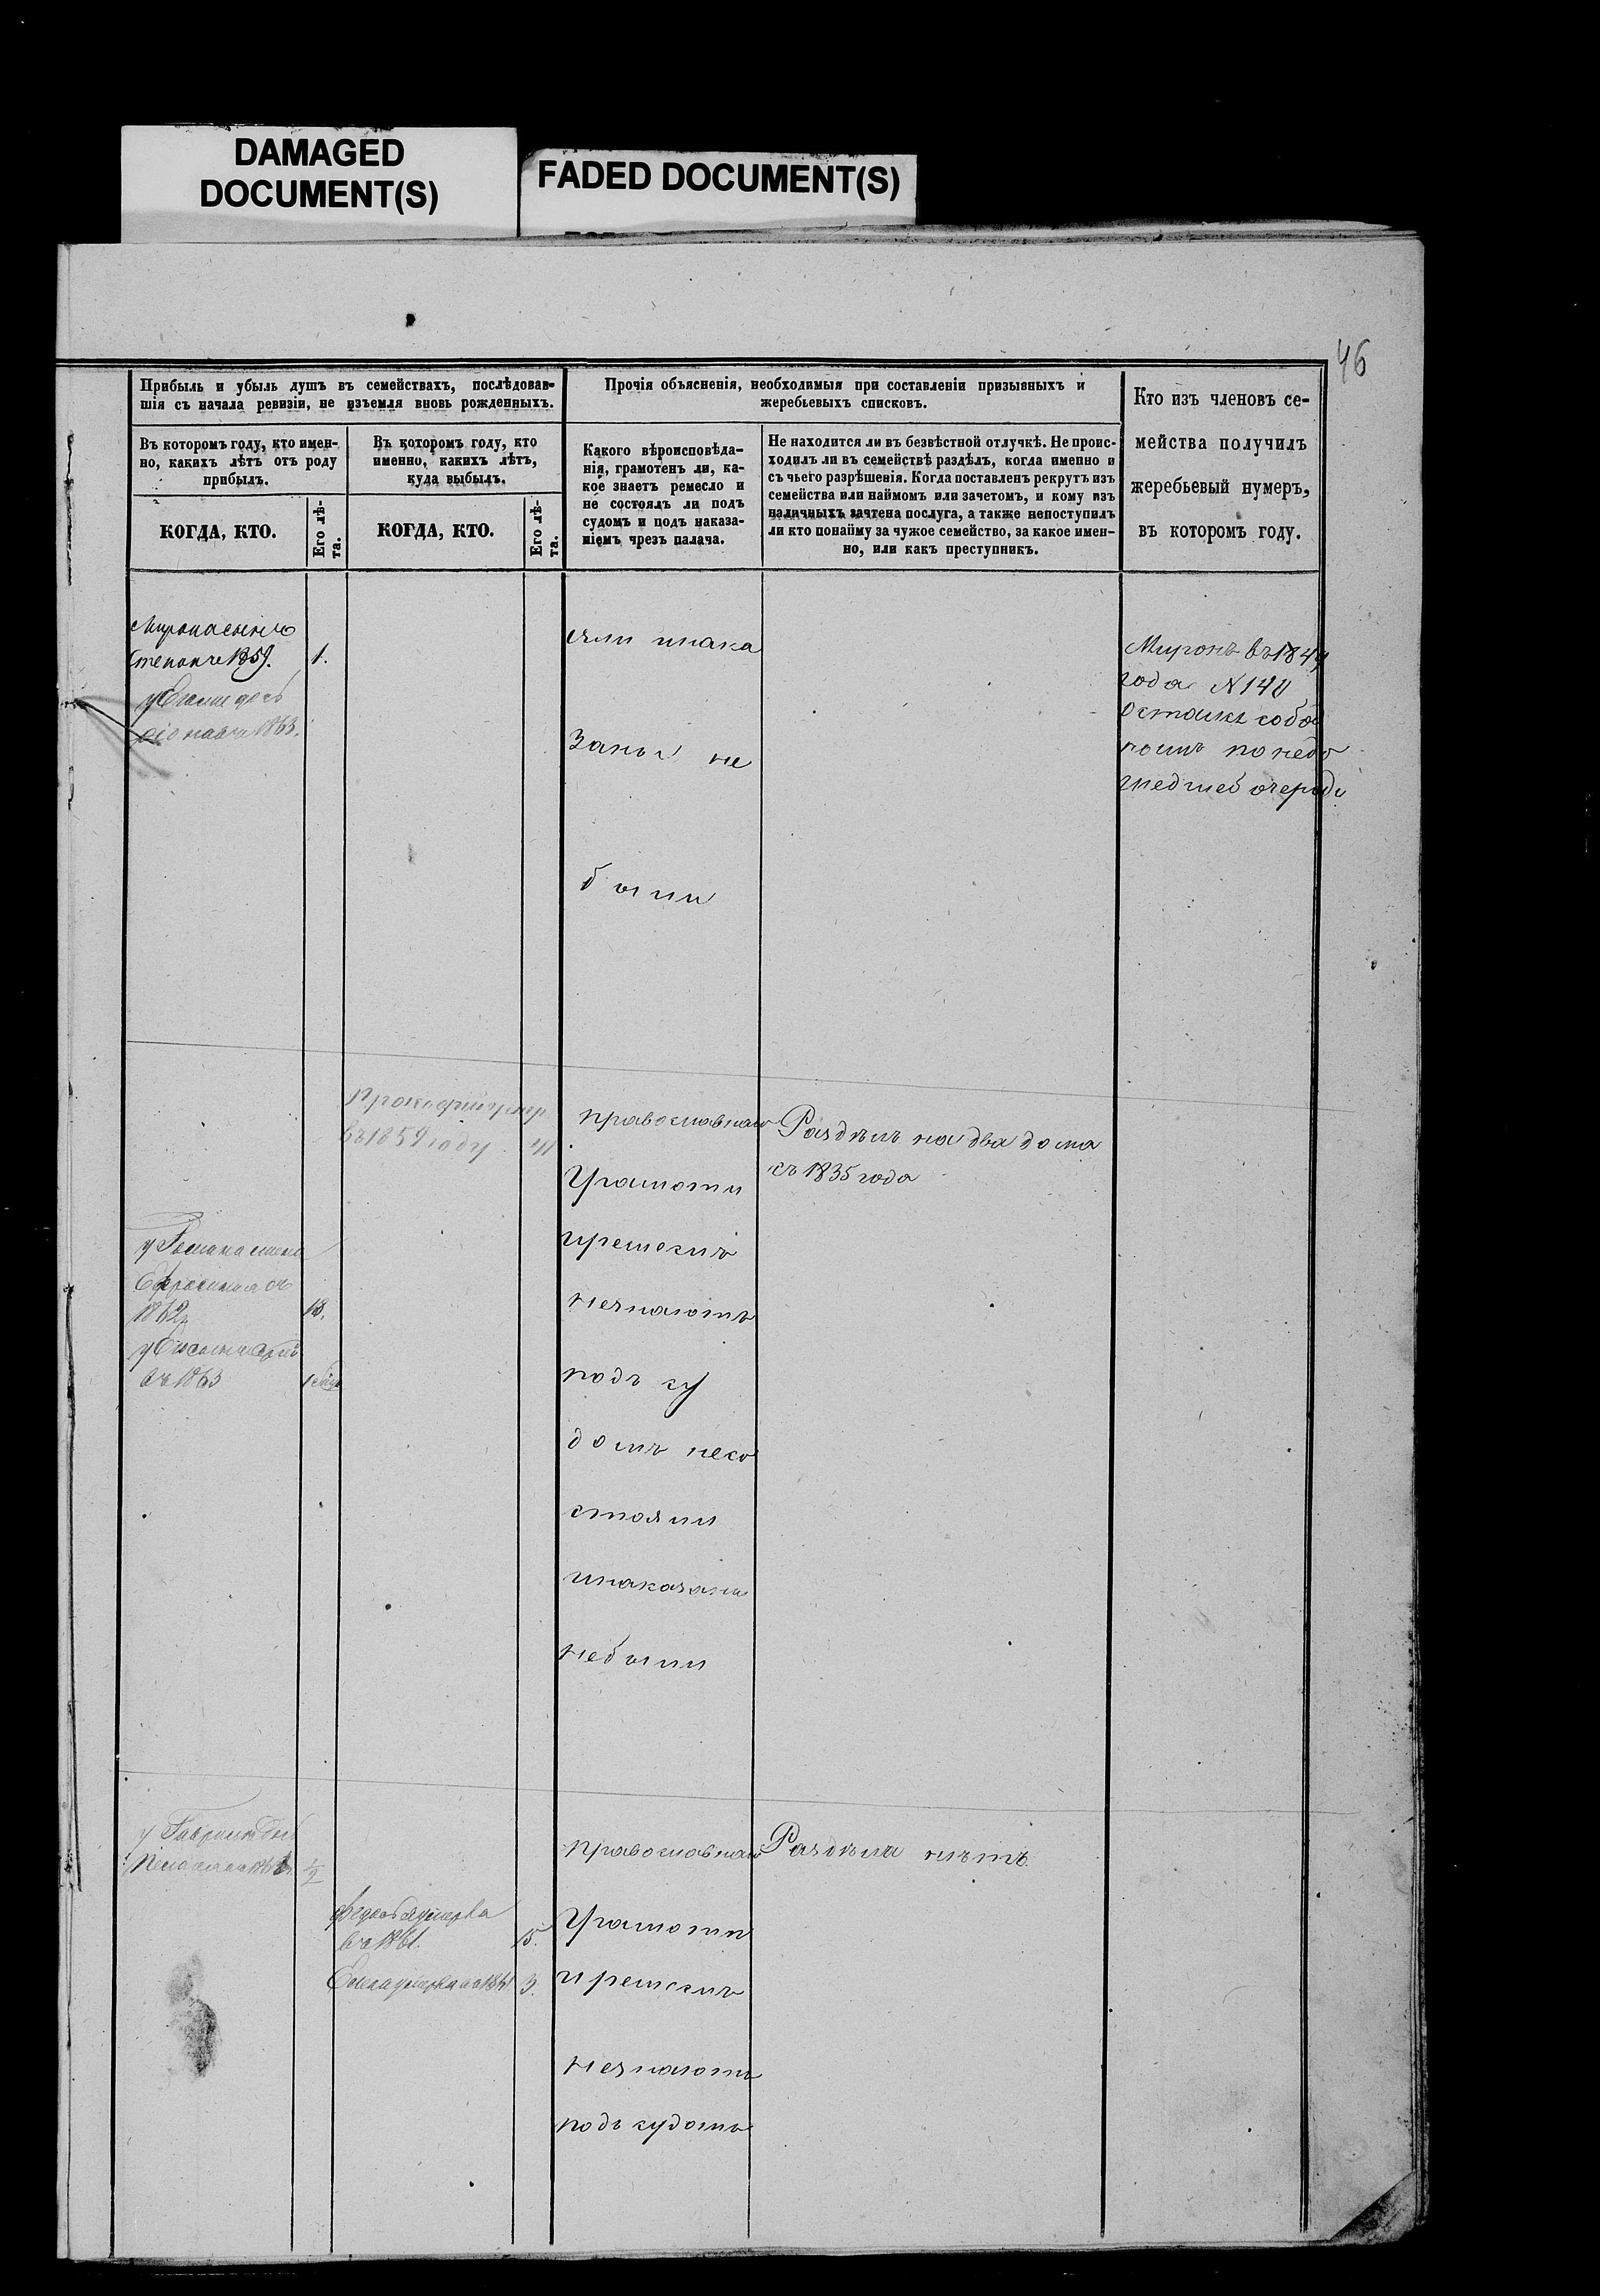 DAMAGED
DOCUMENT(S)
FADED DOCUMENT(S)
46
Прибыль и убыль душъ въ семействахъ, послѣдовав-
шія съ начала ревизіи, не изъемля вновь рожденныхъ.
Прочія объясненія, необходимыя при составленіи призывныхъ и
жеребьевыхъ списковъ.
Кто изъ членовъ се-
мейства получилъ
жеребьевый нумеръ,
въ которомъ году.
Въ которомъ году, кто имен-
но, какихъ лѣтъ отъ роду
прибылъ.
Въ которомъ году, кто
именно, какихъ лѣтъ,
куда выбылъ.
Какого вѣроисповѣда-
нія, грамотенъ ли, ка-
кое знаетъ ремесло и
не состоялъ ли подъ
судомъ и подъ наказа-
ніемъ чрезъ палача.
Не находится ли въ безвѣстной отлучкѣ. Не проис-
ходилъ ли въ семействѣ раздѣлъ, когда именно и
съ чьего разрѣшенія. Когда поставленъ рекрутъ изъ
семейства или наймомъ или зачетомъ, и кому изъ
наличныхъ зачтена послуга, а также непоступилъ
ли кто понайму за чужое семейство, за какое имен-
но, или какъ преступникъ.
КОГДА, КТО.
Его лѣ-
та.
КОГДА, КТО.
Его лѣ-
та.
Мирона сынъ
Степанъ 1859. 1.
1863.
яли инака
заны не
были
Миронъ въ 1849
года N 140
за собою
по недо
шедшей очереди
въ 1859 году
православнаго
Грамоты
иремеслъ
незнаютъ
подъ су
домъ несо
стояли
инаказаны
небыли
Раздѣлъ на два дома
съ 1835 года
у Романа жена
Ефросинья въ
1862 18.
въ 1863
у Гаврила дочь
1/2
въ 1861. 15.
3.
православнаго
Грамоты
иремеслъ
незнаютъ
подъ судомъ
Раздѣла нѣтъ.